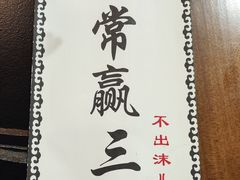 常赢三
不出沫儿